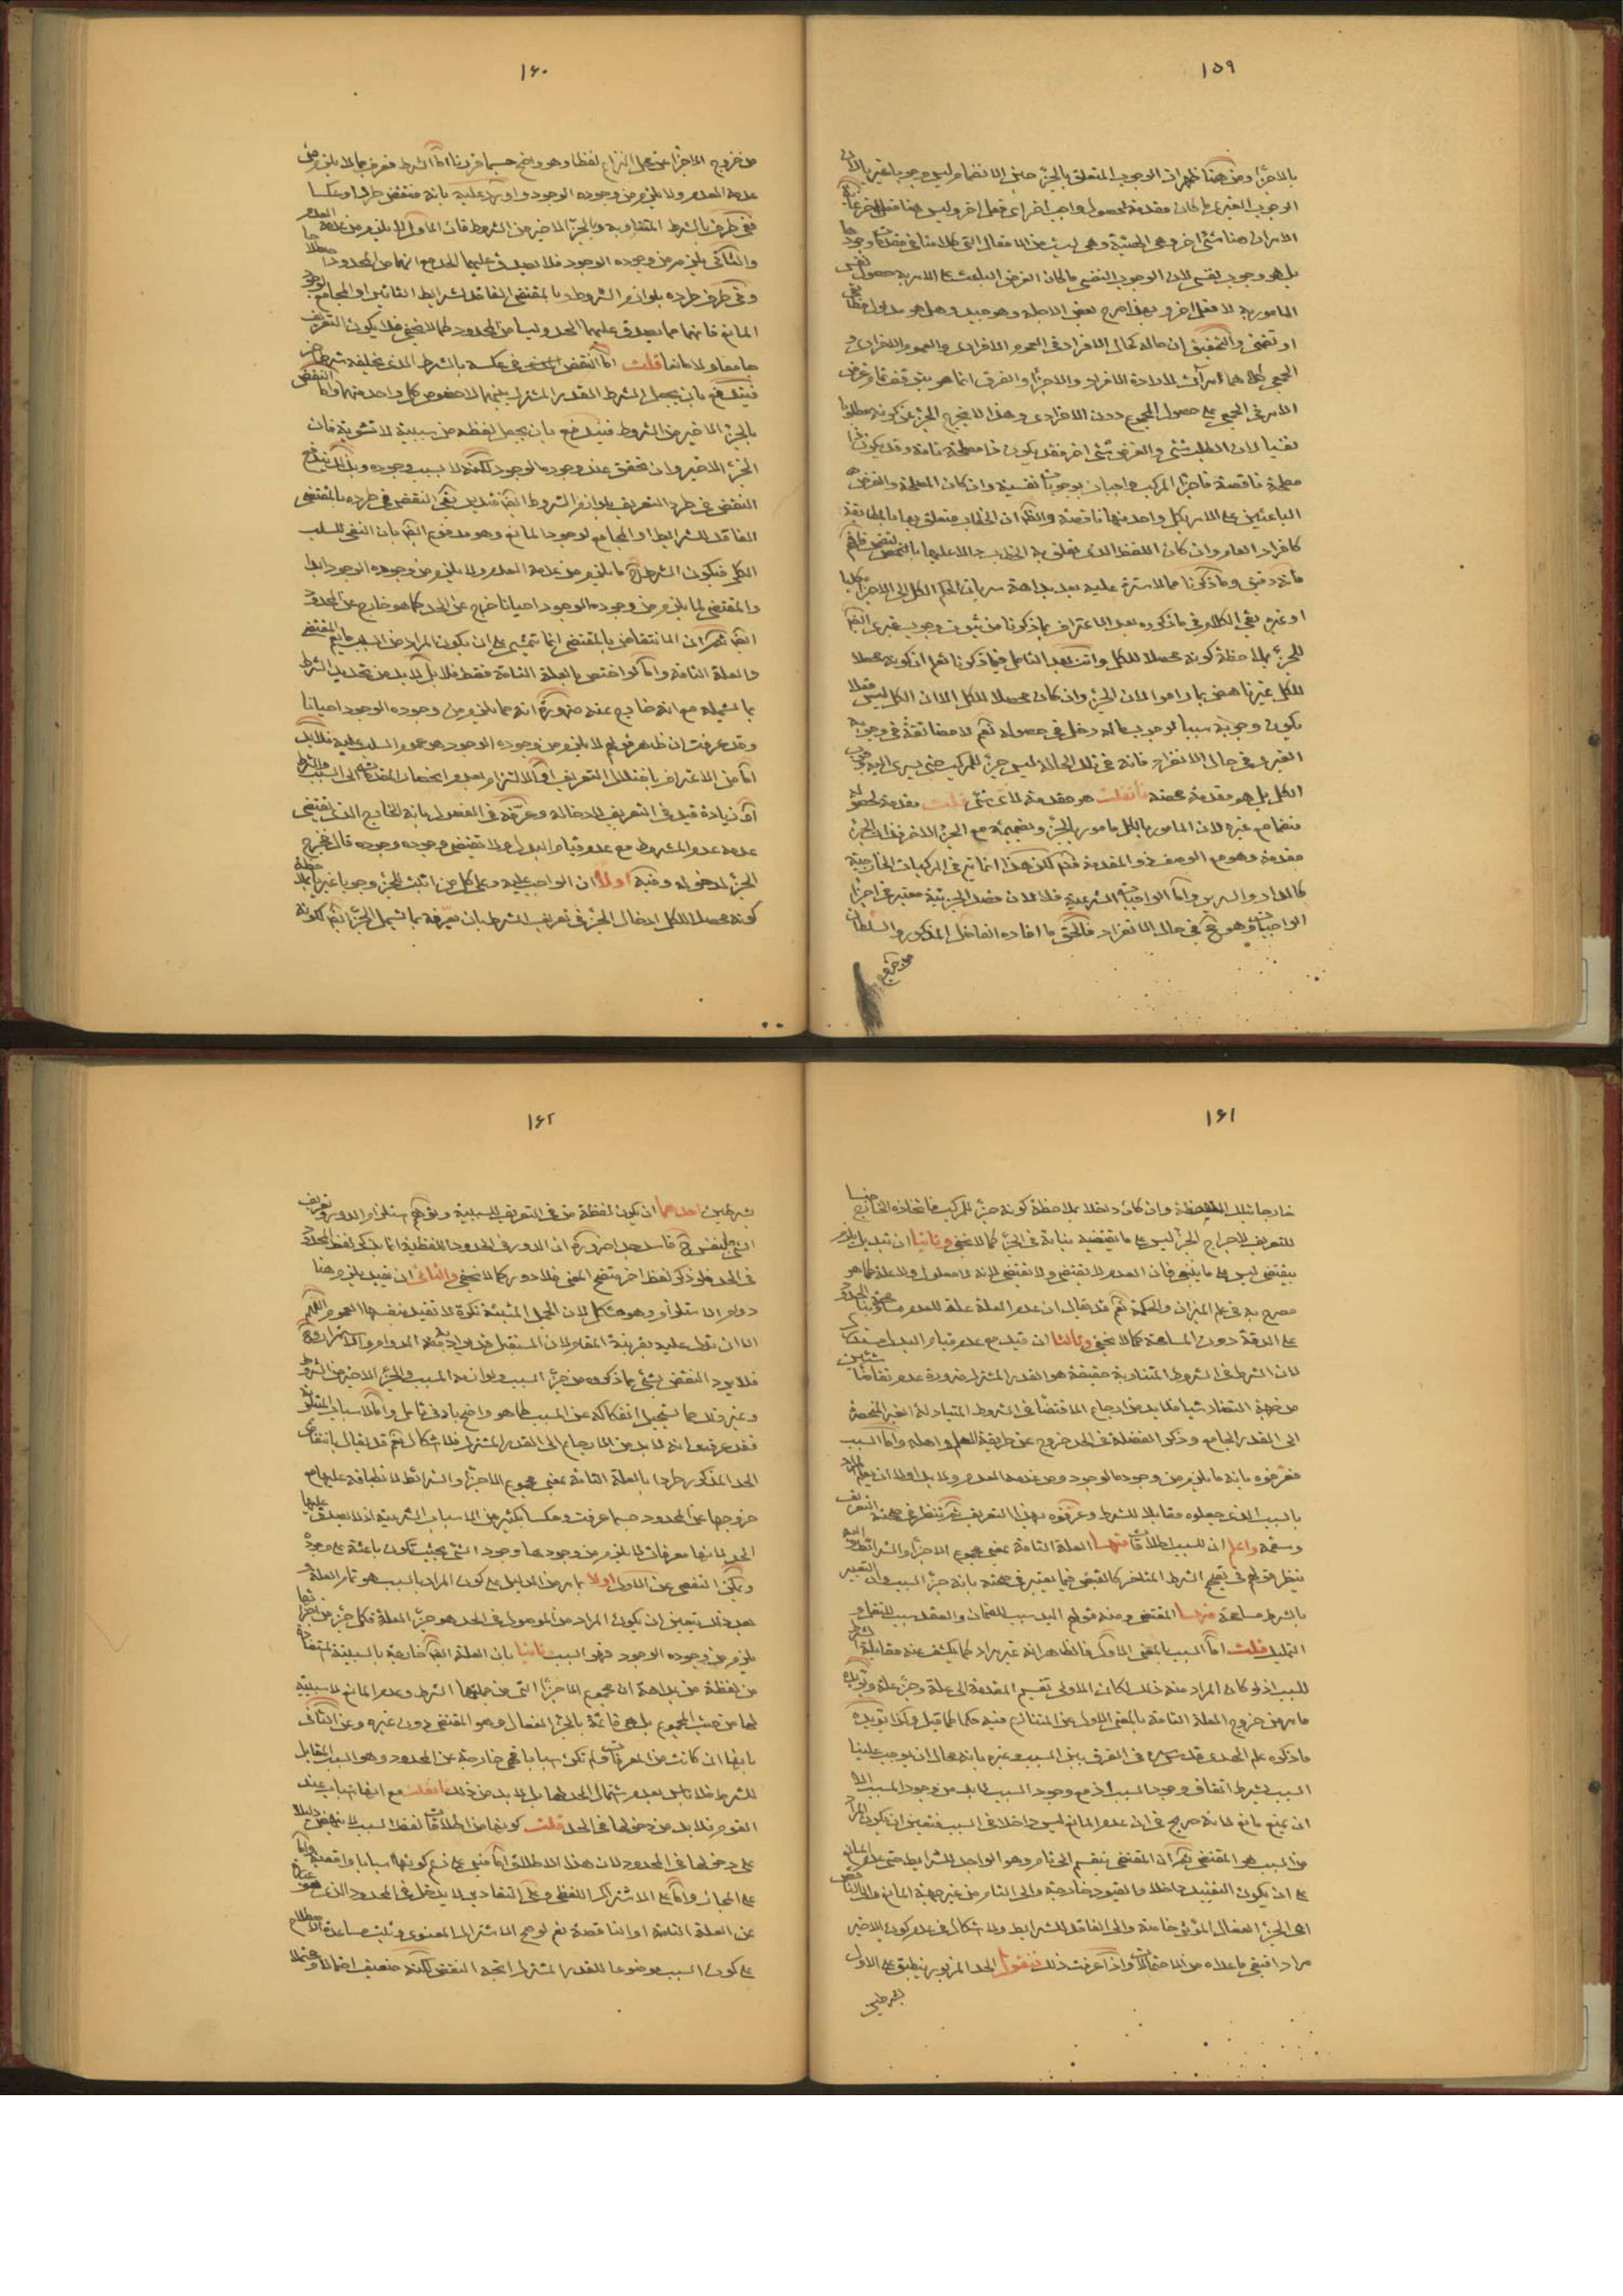 ١٥٩
بالاجزاء ومن هنا ظهر ان الوجوب المتعلق بالجزء حين الانضمام ليس وجوبا غيريا لان
الوجوب الغيرى ما كان مقدمة لحصول واجب اخر اى فعل اخر وليس هنا فعل اخر غاية
الامر ان هنا شئ اخر وهى الهيئة وهى ليست من الافعال التى كلامنا فى مقدماتها وجودا
بل هو وجوب نفسى لان الوجوب النفسى ما كان الغرض الباعث على الامر به حصول نفس
المامور به لا فعل اخر و بهذا صرح بعض الاجلة وهو جيد وهل هو مدلول مطابقى
او تضمنى والتحقيق ان حاله كحال الافراد فى العموم الافرادى والعموم الافرادى و
الجمعى كلاهما مرآت لارادة الافراد والاجزاء والفرق انما هو بتوقف تمام غرض
الامر فى الجمعى على حصول المجموع دون الافرادى وهذا لا يخرج الجزء عن كونه مطلوبا
نفسيا لان الطلب شئ والغرض شئ اخر فقد يكون ذا مصلحة تامة وقد يكون ذا
مصلحة ناقصة فاجزاء المركب واجبات بوجوبات نفسية وان كان المصلحة والغرض
الباعثين على الامر بكل واحد منها ناقصة والظ ان الخطاب متعلق بها بالمطابقة
كافراد العام وان كان اللفظ الذى تعلق به الخطاب دالا عليها بالتضمن فافهم
فانه دقيق وما ذكرنا مما لا سترة عليه بعد بداهة سريان الحكم الكل الى الاجزاء
او غيره بقى الكلام فى ما ذكروه بعد الاعتراف بما ذكرنا من ثبوت وجوب غيرى ايضا
للجزء بملاحظة كونه محصلا للكل وانت بعد التامل فيما ذكرنا تعلم ان كونه محصلا
للكل غير ناهض بما راموا لان الجزء وان كان محصلا للكل الا ان الكل ليس فعلا
يكون وجوبه سببا لوجوب ماله دخل فى حصوله نعم لا مضائقة فى وجوبه
الغيرى فى حال الانفراد فانه فى تلك الحالة ليس جزء للمركب حتى يسرى اليه وجوب
الكل بل هو مقدمة محضة فان قلت هو مقدمة لاى شئ قلت مقدمة لحصوله
منضما مع غيره لان المامور بالكل مامور بالجزء وبضميمة مع الجزء الاخر فذات الجزء
مقدمة وهو مع الوصف ذو المقدمة نعم لكن هذا انما يتم فى المركبات الخارجية
كالمداد والسرير واما الواجبات الشرعية فلا لان قصد الجزئية معتبر فى اجزاء
الواجبات وهو ح فى حال الانفراد فالحق ما افاده الفاضل المذكور والسلطان
من خروج
١٦٠
من خروج الاجزاء عن محل النزاع لفظا وهو واضح حسبما قررنا اما الشرط فعرف بما لا يلزم من
عدمه العدم ولا يلزم من وجوده الوجود واورد عليه بانه منتقض طردا وعكسا
ففى طرف بالشرط المتعاوبة وبالجزء الاخير من الشروط فان الاول لا يلزم من عدمه العدم
والثانى يلزم من وجوده الوجود فلا يصدق عليهما الحد مع انهما من المحدود
وفى طرف طرده بلوازم الشروط وبالمقتضى الفاقد لشرايط التاثير او المجامع لوجود
المانع فانها مما يصدق عليها الحد وليسا من المحدود كما لا يخفى فلا يكون التعريف
جامعا ولا مانعا قلت اما النقض فى عكسه بالشرط الذى يخلفه شرط اخر
فيندفع بان يجعل الشرط القدر المشترك بينهما لا خصوص كل واحد منهما واما النقض
بالجزء الاخير من الشروط فيندفع بان يجعل لفظه من سببية لا نشوية فان
الجزء الاخير وان تحقق عند وجوده الوجود لكنه لا بسبب وجوده وبذلك يندفع
النقض فى طرد التعريف بلوازم الشروط ايضا فقد بقى النقض فى طرده بالمقتضى
الفاقد للشرايط او المجامع لوجود المانع وهو مدفوع ايضا بان النفى للسلب
الكلى فيكون الشرط ح ما يلزم من عدمه العدم ولا يلزم من وجوده الوجود ابدا
والمقتضى لما يلزم من وجوده الوجود احيانا خرج عن الحد كما هو خارج عن المحدود
ايضا نعم ان الانتقاض بالمقتضى انما يتمشى على ان يكون المراد من السبب ما يعم المقتضى
والعلة التامة واما لو اختص بالعلة التامة فقط فلا بل لا بد من تحديد الشرط
بما يشمله مع انه خارج عنه ضرورة انه مما يلزم من وجوده الوجود احيانا
وقد عرفت ان ظاهر قولهم لا يلزم من وجوده الوجود هو عموم السلب عليه فلا بد
اما من الاعتراف باختلال التعريف او الالتزام بعدم انحصار المقدمة الى السبب والشرط
او زيادة قيد فى التعريف لادخاله وعرفه فى الفصول بانه الخارج الذى يقتضى
عدمه عدم المشروط مع عدم قيام البدل ولا يقتضى وجوده وجوده قال فخرج
الجزء لدخوله وفيه اولا ان الواجب عليه وعلى كل من اثبت للجزء وجوبا غيريا بملاحظة
كونه محصلا للكل ادخال الجزء فى تعريف الشرط بان يعرفه بما يشمل الجزء ايضا لكونه
١٦١
خارجا بتلك الملاحظة وان كان داخلا بملاحظة كونه جزء للمركب فاتخاذه الخارج جنسا
للتعريف لاخراج الجزء ليس على ما يقتضيه بنائه فى الجزء كما لا يخفى وثانيا ان تبديل يلزم
بيقتضى ليس على ما ينبغى فان العدم لا يقتضى ولا يقتضى لانه لا معلول ولا علة كما هو
مصرح به فى علم الميزان والحكمة نعم قد يقال ان عدم العلة علة للعدم
على الدقة دون المسامحة كما لا يخفى وثالثا ان قيد مع عدم قيام البدل مستدرك
لان الشرط فى الشروط المتناوبة حقيقة هو القدر المشترك ضرورة عدم تقاضا شيئين
من جهة التضاد شيئا فلا بد من ارجاع الاقتضاء فى الشروط المتبادلة الغير المنحصرة
الى القدر الجامع وذكر الفضلة فى الحد خروج عن طريقة العلم واهله واما السبب
فعرفوه بانه ما يلزم من وجوده الوجود ومن عدمه العدم ولا بد اولا ان يعلم المراد
بالسبب الذى جعلوه مقابلا للشرط وعرفوه بهذا التعريف ثم ننظر فى صحة التعريف
وسقمه واعلم ان للسبب اطلاقات منها العلة التامة بمعنى مجموع الاجزاء والشرائط واليه
ينظر قولهم فى تصحيح الشرط المتاخر كالقبض فيما يعتبر فى صحته بانه جزء السبب وان التعبير
بالشرط مسامحة منها المقتضى ومنه قولهم اليد سبب للضمان والعقد سبب للنقل و
التمليك قلت اما السبب بالمعنى الاول فالظاهر انه غير مراد كما يكشف عنه مقابلة الشرط
للسبب اذ لو كان المراد منه ذلك لكان الاولى تقسيم المقدمة الى علة وجزء علة ويؤيده
ما مر من خروج العلة التامة بالمعنى الاول عن المتنازع فيه حكما كما قيل وكذا يؤيده
ماذكروه علم الهدى قدس سره فى الفرق بين السبب وغيره بانه محال ان يوجب علينا
السبب بشرط اتفاق وجود السبب اذ مع وجود السبب لا بد من وجود المسبب الا
ان يمنع مانع فانه صريح فى ان عدم المانع ليس داخلا فى السبب فتعين ان يكون المراد
من السبب هو المقتضى نعم ان المقتضى ينقسم الى تام وهو الواجد للشرايط حتى عدم المانع
على ان يكون التقييد داخلا والقيود خارجة والى التام من غير جهة المانع والى الناقص
اعنى الجزء الفعال المؤثر خاصة والى الفاقد للشرايط ولا اشكال فى عدم كون الاخير
مرادا فبقى ماعداه من الاحتمالات واذا عرفت ذلك فنقول الحد المزبور ينطبق على الاول
بشرطين
١٦٢
بشرطين احدهما ان يكون لفظة من فى التعريف للسببية وتوهم استلزام الدور وتعريف
الشئ بنفسه ح فاسد جدا ضرورة ان الدور فى الحدود اللفظية انما يذكر لفظ المحدود
فى الحد فلو ذكر لفظ اخر متضح المعنى فلا دور كما لا يخفى والثانى ان يفيد يلزم هنا
دوام الاستلزام وهو مشكل لان الجمل المثبتة نكرة لا تفيد بنفسها العموم اللهم
الا ان تدل عليه بقرينة المقام لان المستقبل قد يراد منه الدوام والاستمرار وح
فلا يرد النقض بشئ مما ذكروه من جزء السبب ولوازمه السبب والجزء الاخير من الشروط
وغير ذلك مما يستحيل انفكاكه عن المسبب كما هو واضح بادنى تامل واما الاسباب المتبادلة
فقد عرفت انه لا بد من الارجاع الى القدر المشترك فلا اشكال نعم قد يقال بانتقاض
الحد المذكور طردا بالعلة التامة بمعنى مجموع الاجزاء والشرائط لانطباقه عليها مع
خروجها عن المحدود حسبما عرفت وعكسا بكثير من الاسباب الشرعية اذ لا يصدق عليها
الحد لانها معرفات لا يلزم من وجودها وجود الشئ بحيث تكون باعثة على وجوده
ويمكن التفصى عن الاول اولا بما مر من الدليل على كون المراد بالسبب هو تمام العلة و
بعد ذلك يتعين ان يكون المراد من الموصول فى الحد هو جزء العلة فكل جزء من اجزائها
يلزم من وجوده الوجود فهو السبب وثانيا بان العلة ايضا خارجة بالسببية المستفادة
من لفظة من بداهة ان مجموع الاجزاء التى من جملتها الشرط وعدم المانع لا سببية
لها من حيث المجموع بل هى قائمة بالجزء الفعال وهو المقتضى دون غيره وعن الثانى
بانها ان كانت من المعرفات فلم تكن اسبابا فهى خارجة عن المحدود وهو السبب المقابل
للشرط فلا باس بعدم شمول الحد لها بل لا بد من ذلك فان قلت مع انها اسباب عند
القوم فلا بد من دخولها فى الحد قلت كونها من اطلاقات لفظ السبب لا ينهض دليلا
على دخولها فى المحدود لان هذا الاطلاق اما مبنى على زعم كونها اسبابا واقعية واما
على المجاز واما على الاشتراك اللفظى وعلى التقادير لا يدخل فى المحدود الذى هو عبارة
عن العلة التامة او الناقصة نعم لو صح الاشتراك المعنوى وثبت مساعدة الاصطلاح
على كون السبب موضوعا للقدر المشترك اتجه النقض لكنه ضعيف احتمالا ومحتملا